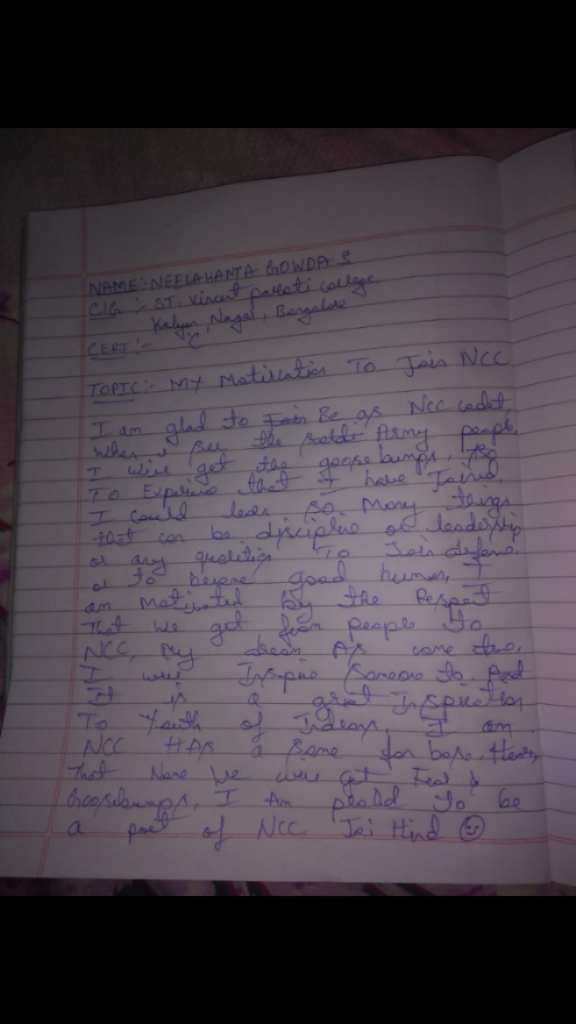 NAME:- NEELAKANTA GOWDA S
C/G :- ST. Vincent college,
Kalyan, Nagar, Bangalore
CERT:- 'C'
TOPIC:- MY Motivation To Join NCC
I am glad to Be as NCC cadet,
When I see the Army people
I will get the goosebumps, So
To that I have Joind
I could learn so Many things
that can be discipline or leadership
or any qualities To Join defence.
or to good human, I
am Motivated By the Respect
That we get from people to
NCC, My dream As come true,
I will Inspire Someone to And
It is a great Inspiration
To Youth of Indians, I am
NCC HAS a Same for
That Name we will get Feel &
Goosebumps, I Am to be
a part of NCC Jai Hind ☺